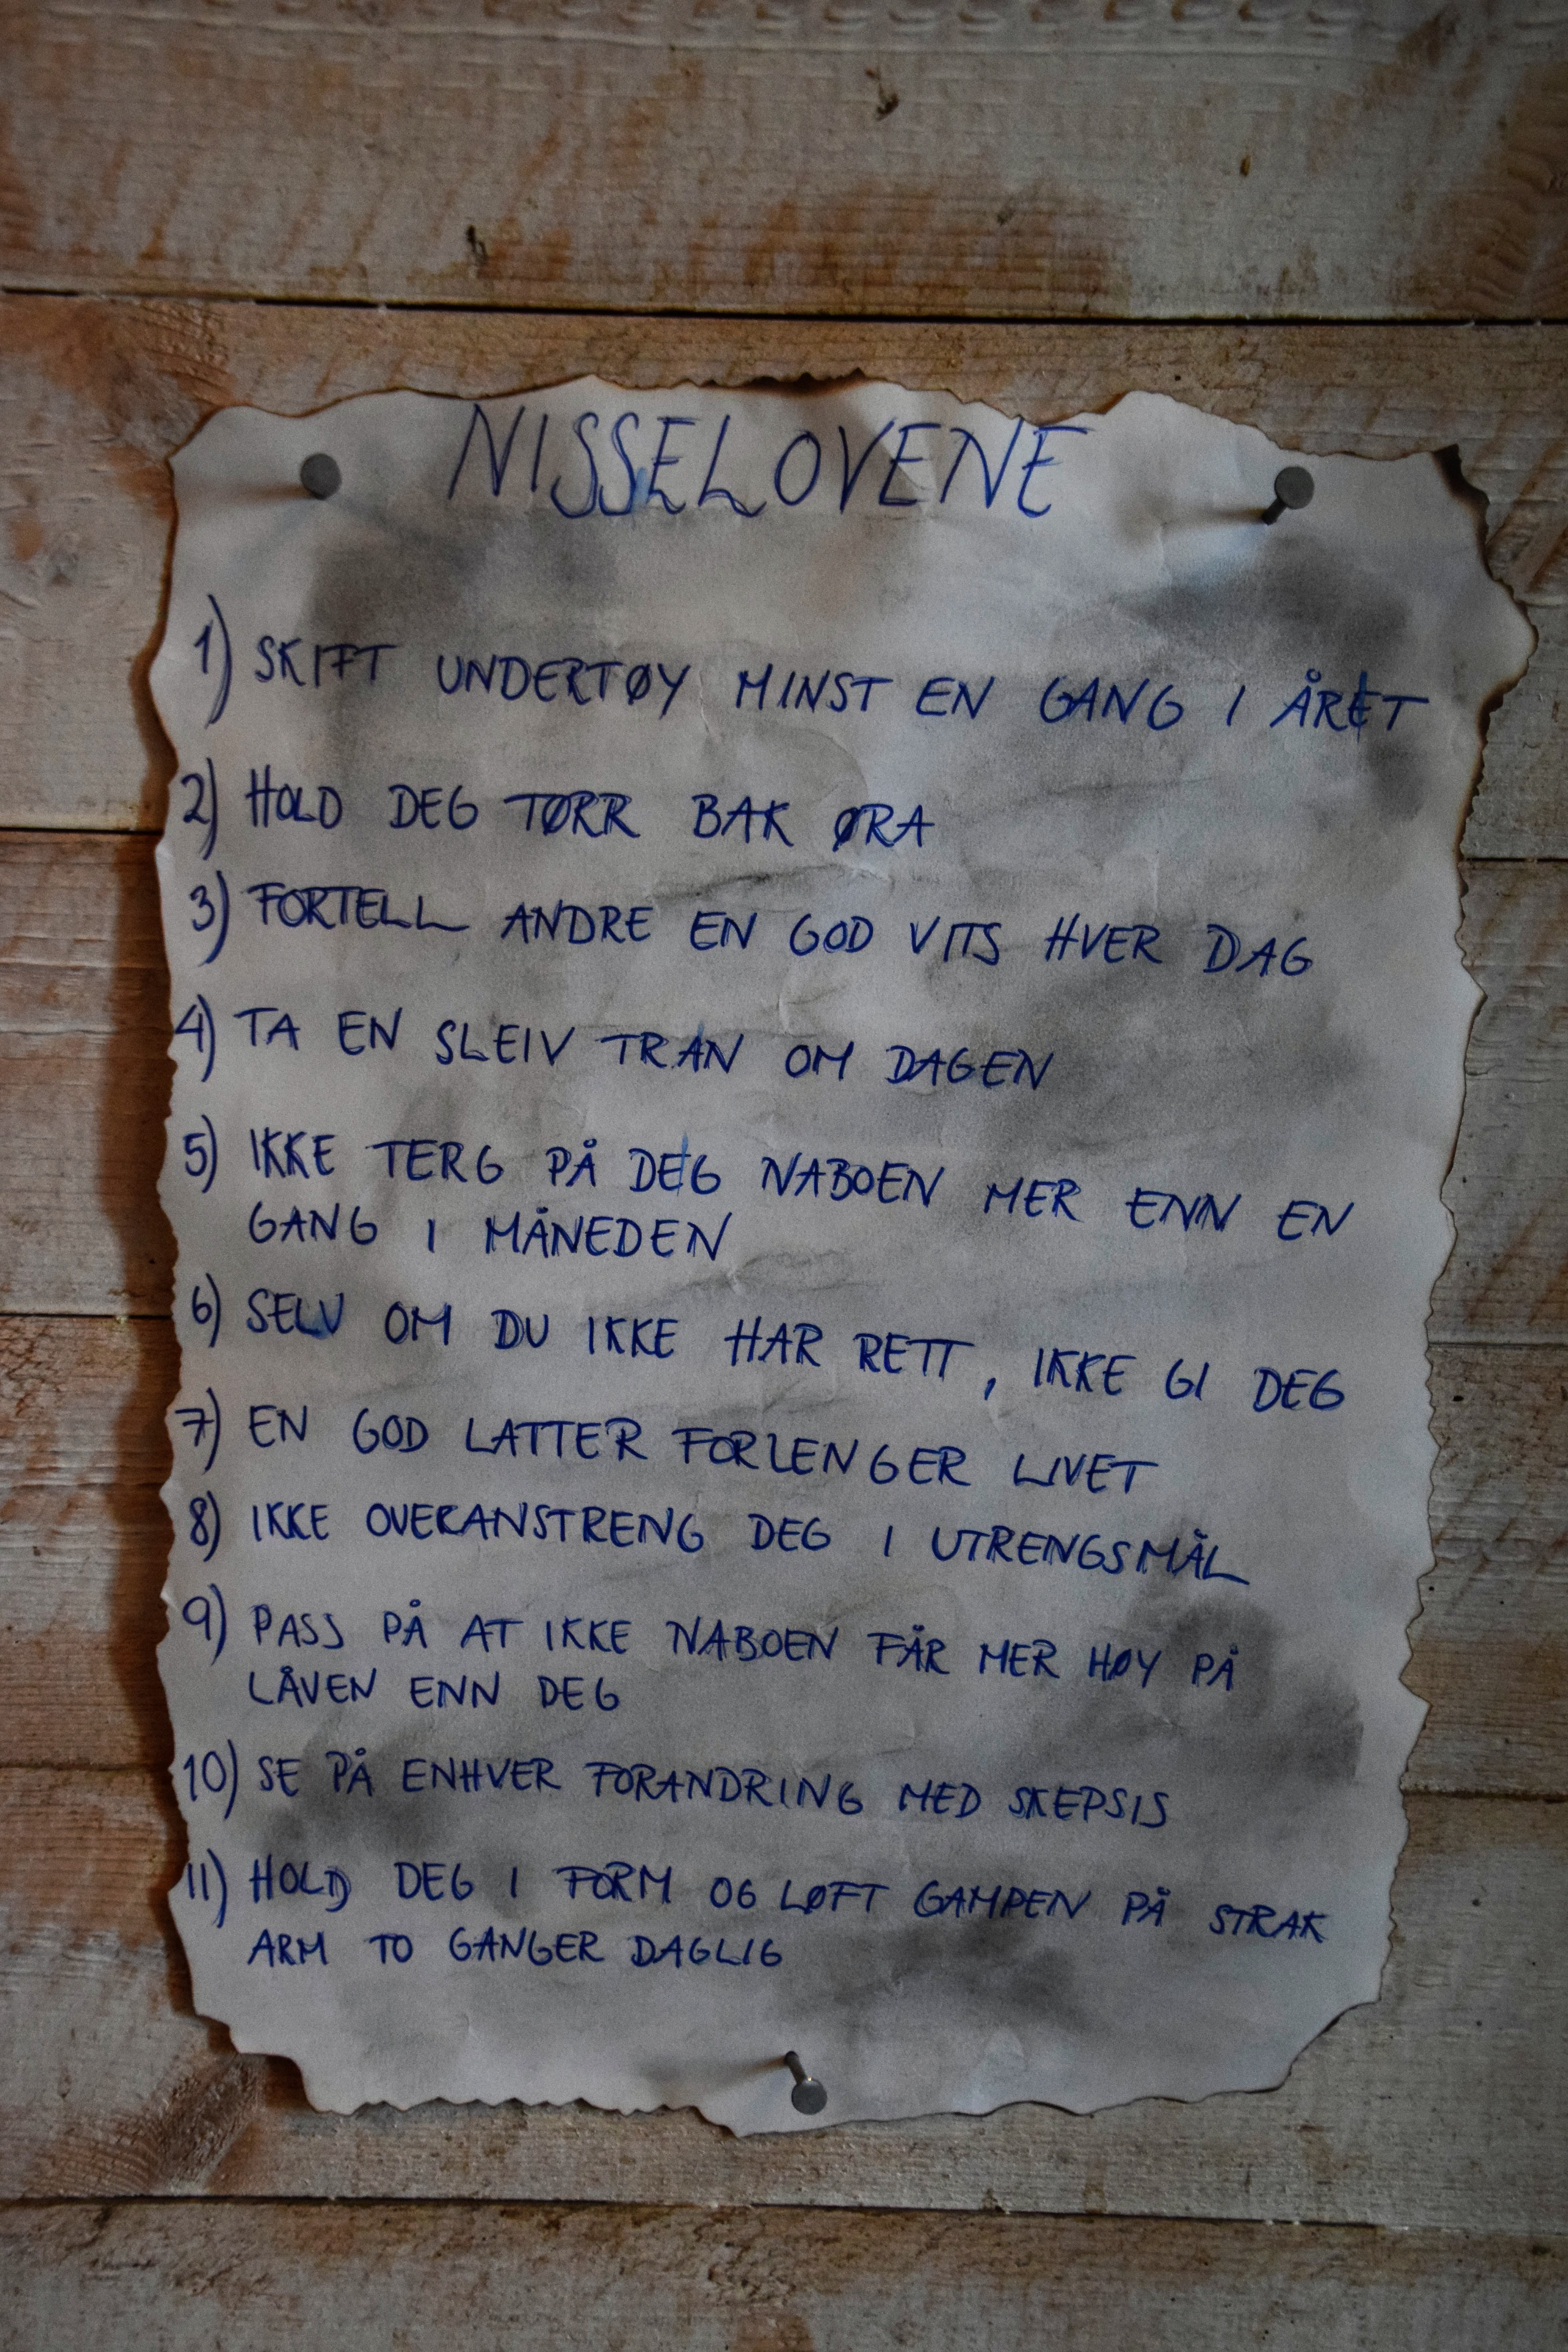 NISSELOVENE
1) SKIFT UNDERTØY MINST EN GANG I ÅRET
2) HOLD DEG TØRR BAK ØRA
3) FORTELL ANDRE EN GOD VITS HVER DAG
4) TA EN SLEIV TRAN OM DAGEN
5) IKKE TERG PÅ DEG NABOEN MER ENN EN
GANG I MÅNEDEN
6) SELV OM DU IKKE HAR RETT, IKKE GI DEG
7) EN GOD LATTER FORLENGER LIVET
8) IKKE OVERANSTRENG DEG I UTRENGSMÅL
9) PASS PÅ AT IKKE NABOEN FÅR MER HØY PÅ
LÅVEN ENN DEG
10) SE PÅ ENHVER FORANDRING MED SKEPSIS
11) HOLD DEG I FORM OG LØFT GAMPEN PÅ STRAK
ARM TO GANGER DAGLIG